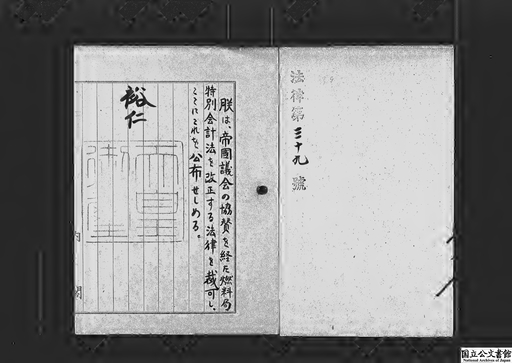 法律第三十九號
朕は、帝國議会の協賛を経た燃料局
特別会計法を改正する法律を裁可し、
ここにこれを公布せしめる。
裕仁
天皇御璽
内閣
国立公文書館
National Archives of Japan